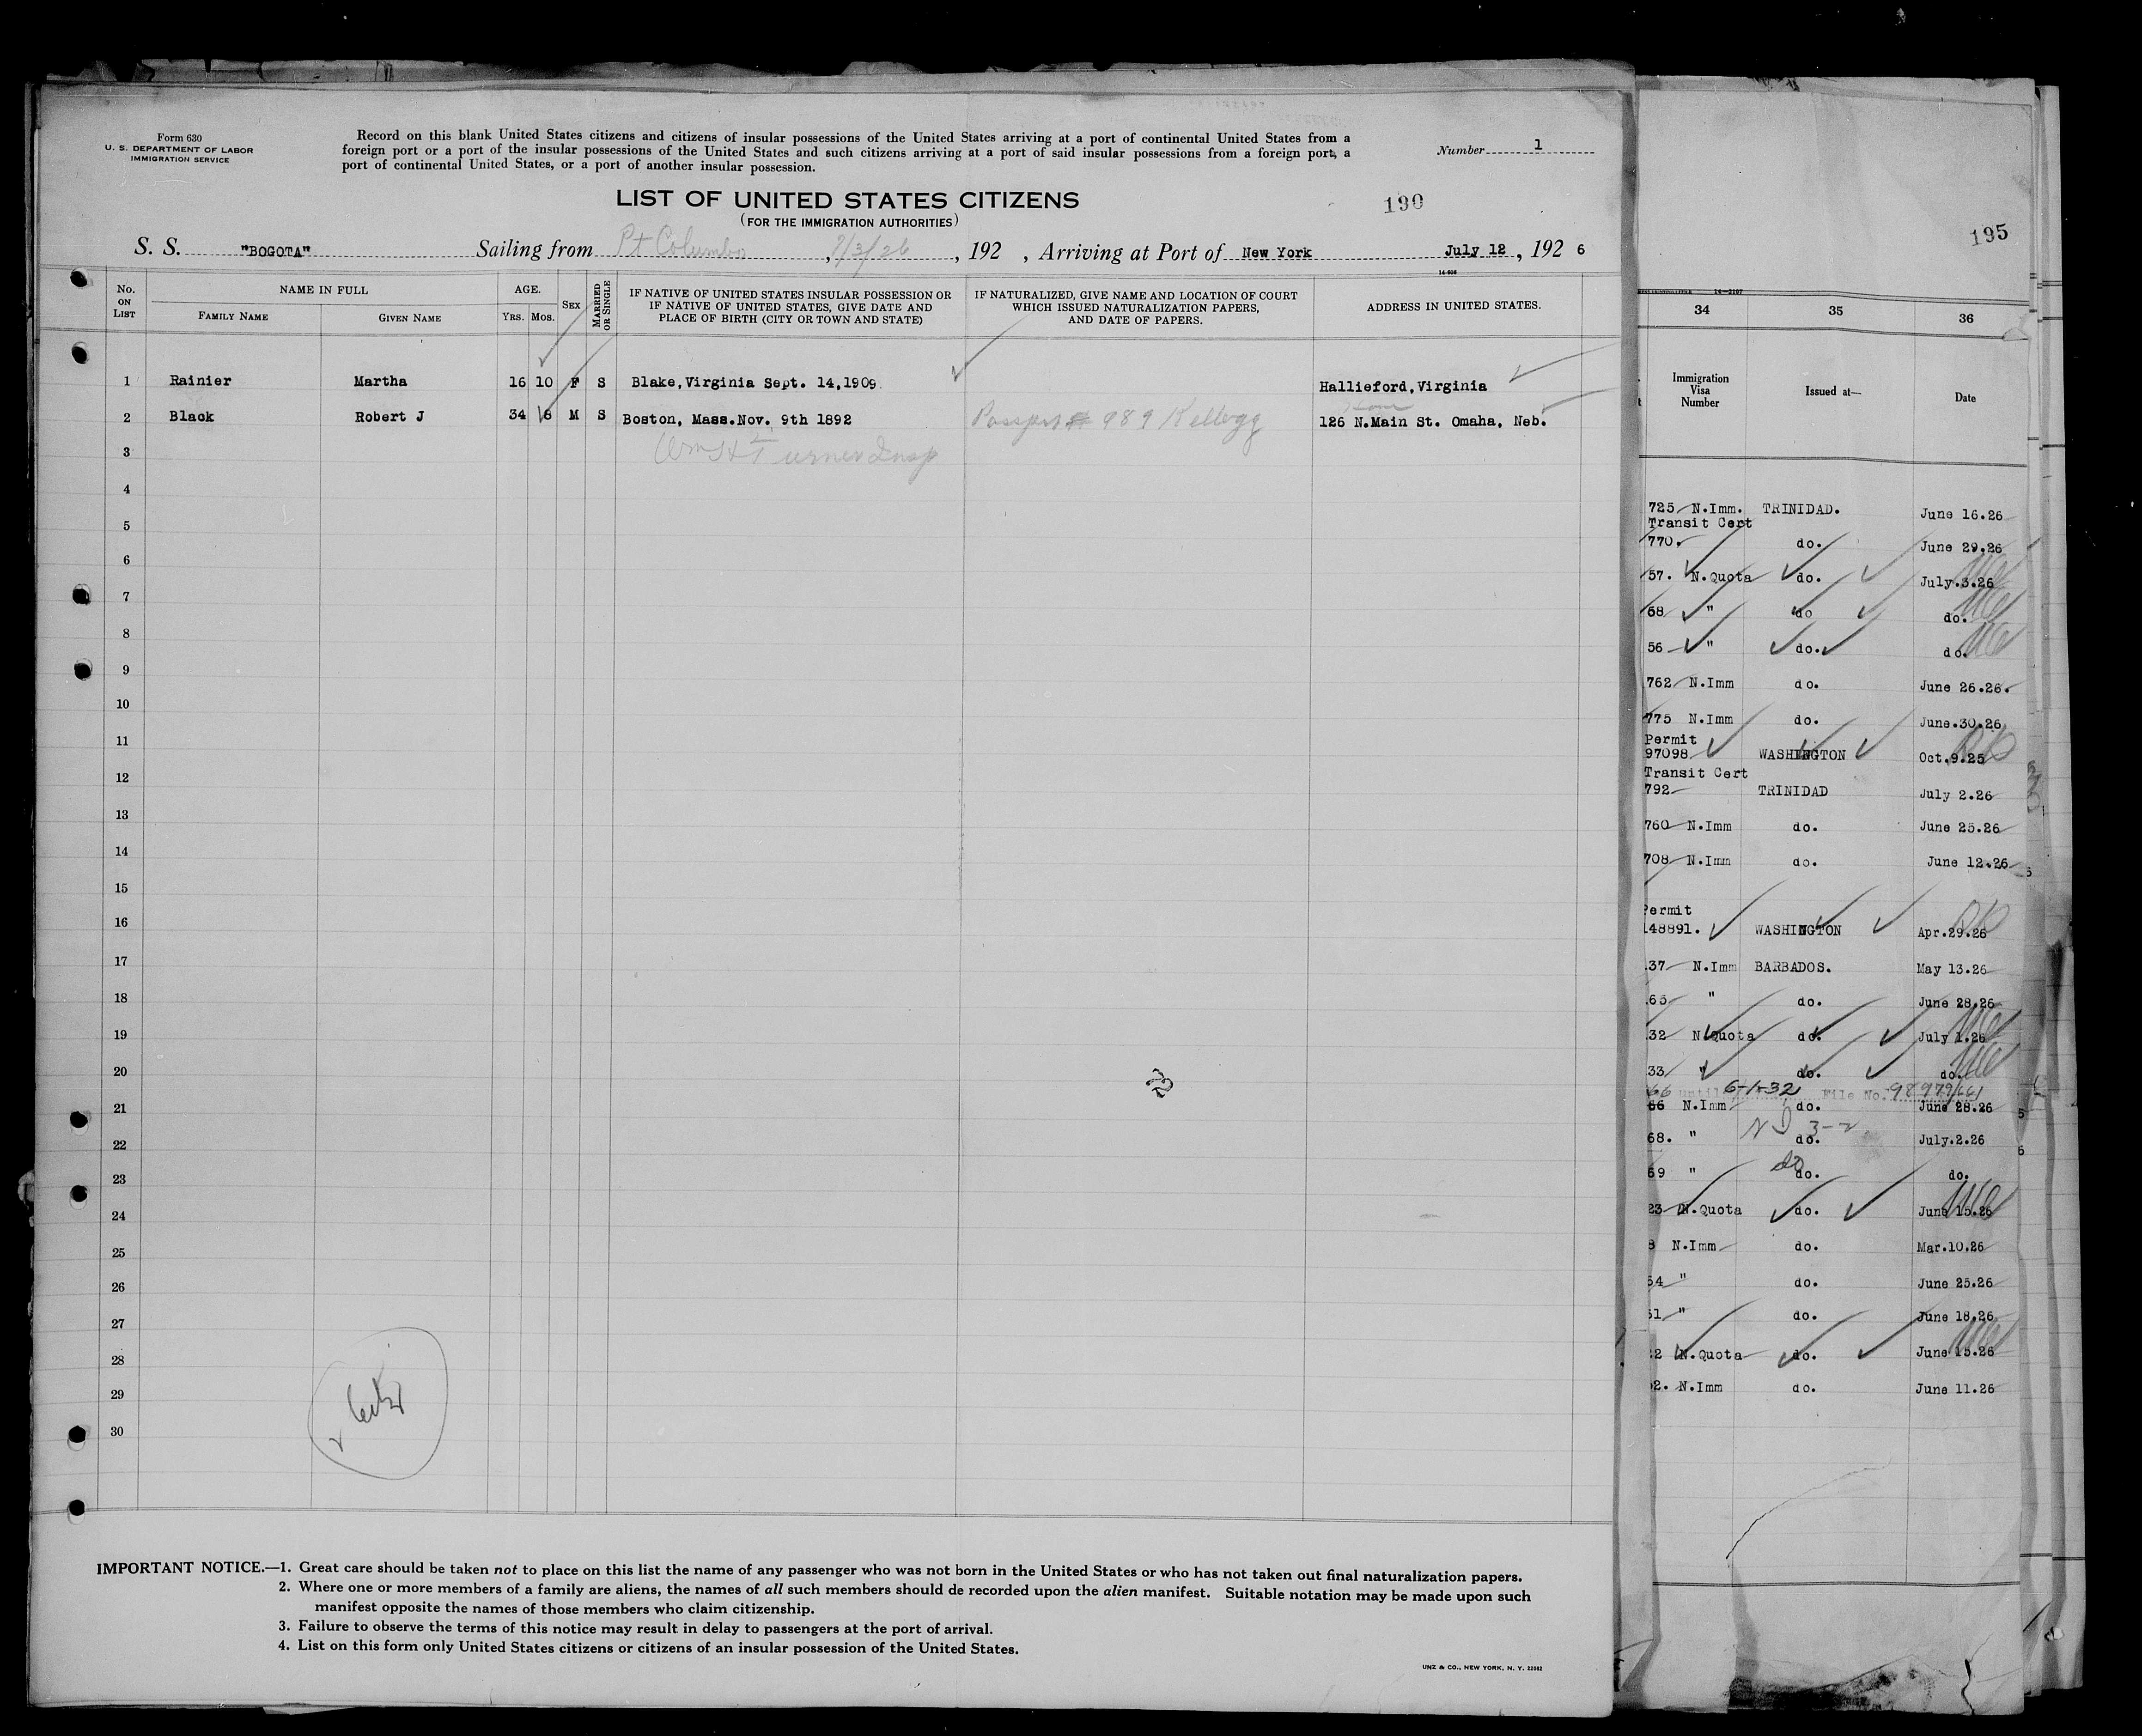 Form 630
U. S. DEPARTMENT OF LABOR
IMMIGRATION SERVICE
Record on this blank United States citizens and citizens of insular possessions of the United States arriving at a port of continental United States from a
foreign port or a port of the insular possessions of the United States and such citizens arriving at a port of said insular possessions from a foreign port, a
port of continental United States, or a port of another insular possession.
Number 1
LIST OF UNITED STATES CITIZENS
(FOR THE IMMIGRATION AUTHORITIES)
190
S. S. "BOGOTA" Sailing from Pt Columbo , 7/3/26 , 192 , Arriving at Port of New York July 12 , 192 6
14-608
No. ON LIST
NAME IN FULL
FAMILY NAME
GIVEN NAME
AGE.
Yrs. Mos.
SEX
MARRIED OR SINGLE
IF NATIVE OF UNITED STATES INSULAR POSSESSION OR
IF NATIVE OF UNITED STATES, GIVE DATE AND
PLACE OF BIRTH (CITY OR TOWN AND STATE)
IF NATURALIZED, GIVE NAME AND LOCATION OF COURT
WHICH ISSUED NATURALIZATION PAPERS,
AND DATE OF PAPERS.
ADDRESS IN UNITED STATES.
1 Rainier Martha 16 10 F S Blake,Virginia Sept. 14,1909. Hallieford,Virginia
2 Black Robert J 34 6 M S Boston, Mass.Nov. 9th 1892 Passport # 989 Kellogg 126 N.Main St. Omaha, Neb.
3 Wm H Turner Insp
4
5
6
7
8
9
10
11
12
13
14
15
16
17
18
19
20
21
22
23
24
25
26
27
28
29
30
IMPORTANT NOTICE.—1. Great care should be taken not to place on this list the name of any passenger who was not born in the United States or who has not taken out final naturalization papers.
2. Where one or more members of a family are aliens, the names of all such members should de recorded upon the alien manifest. Suitable notation may be made upon such
manifest opposite the names of those members who claim citizenship.
3. Failure to observe the terms of this notice may result in delay to passengers at the port of arrival.
4. List on this form only United States citizens or citizens of an insular possession of the United States.
UNZ & CO., NEW YORK, N. Y. 22082
195
34 35 36
Immigration
Visa
Number
Issued at—
Date
725 N.Imm. TRINIDAD. June 16.26
Transit Cert
770. do. June 29.26
57. N.Quota do. July.3.26
68 " do do.
56 " do. do.
762 N.Imm do. June 26.26.
775 N.Imm do. June.30.26
Permit
97098 WASHINGTON Oct.9.25
Transit Cert
792 TRINIDAD July 2.26
760 N.Imm do. June 25.26
708 N.Imm do. June 12.26
Permit
148891. WASHINGTON Apr.29.26
37 N.Imm BARBADOS. May 13.26
65 " do. June 28.26
32 N.Quota do. July 1.26
33 " do. do.
66 until 6-1-32 File No. 98979/661
66 N.Imm do. June 28.26
68. " do. July.2.26
69 " do. do.
23 N.Quota do. June 15.26
8 N.Imm do. Mar.10.26
54 " do. June 25.26
51 " do. June 18.26
2 N.Quota do. June 15.26
2. N.Imm do. June 11.26